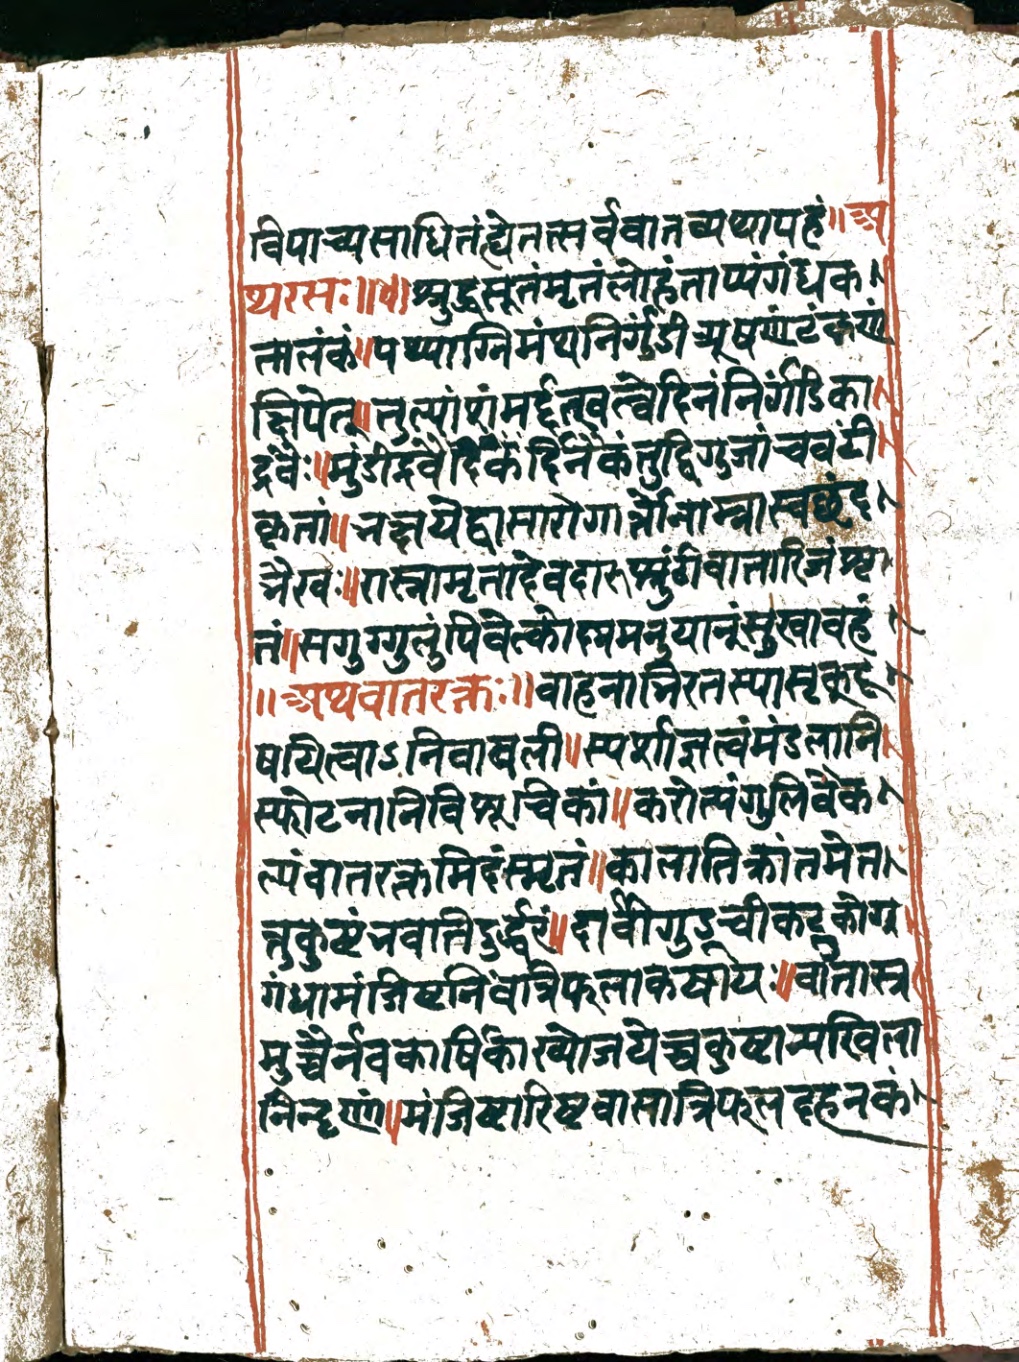 विपाच्यसाधितंह्येतत्सर्ववातव्यथापहं॥अ
थरसः॥छ॥शुद्धसूतंमृतंलोहंताप्यंगंधक
तालंकं॥पथ्याग्निमंथनिर्गुंडीत्र्यूषणंटंकणं
क्षिपेत्॥तुल्यांशंमर्द्दत्खल्वेदिनंनिर्गुंडिका
द्रवैः॥मुंडीद्रवैर्दिनैकंतुद्विगुंजांचवटी
कृतां॥भक्षयेद्वासारोगार्त्तोनाम्नास्वछंद
भैरवः॥रास्नामृतादेवदारुशुंठीवातारिजंशृ
तं॥सगुग्गुलुंपिवेत्कोष्णमनुपानंसुखावहं
॥अथवातरक्तः॥वाहनाभिरतस्पासृक्दू
षयित्वाऽनिवाखली॥स्पर्शाज्ञत्वंमंडलानि
स्फोटनानिविशूचिकां॥करोत्यंगुलिवैक
ल्यंवातरक्तमिदंस्मृतं॥कालातिक्रांतमेत
त्तुकुष्टंभवतिदुर्द्धरं॥दार्वीगुडूचीकटुकोग्र
गंधामंजिष्टनिंवत्रिफलाकषायः॥वातास्र
मुच्चैर्नवकार्षिकाख्योजयेच्चकुष्टान्यखिला
निनृणां॥मंजिष्टारिष्टवासात्रिफलदहनकं